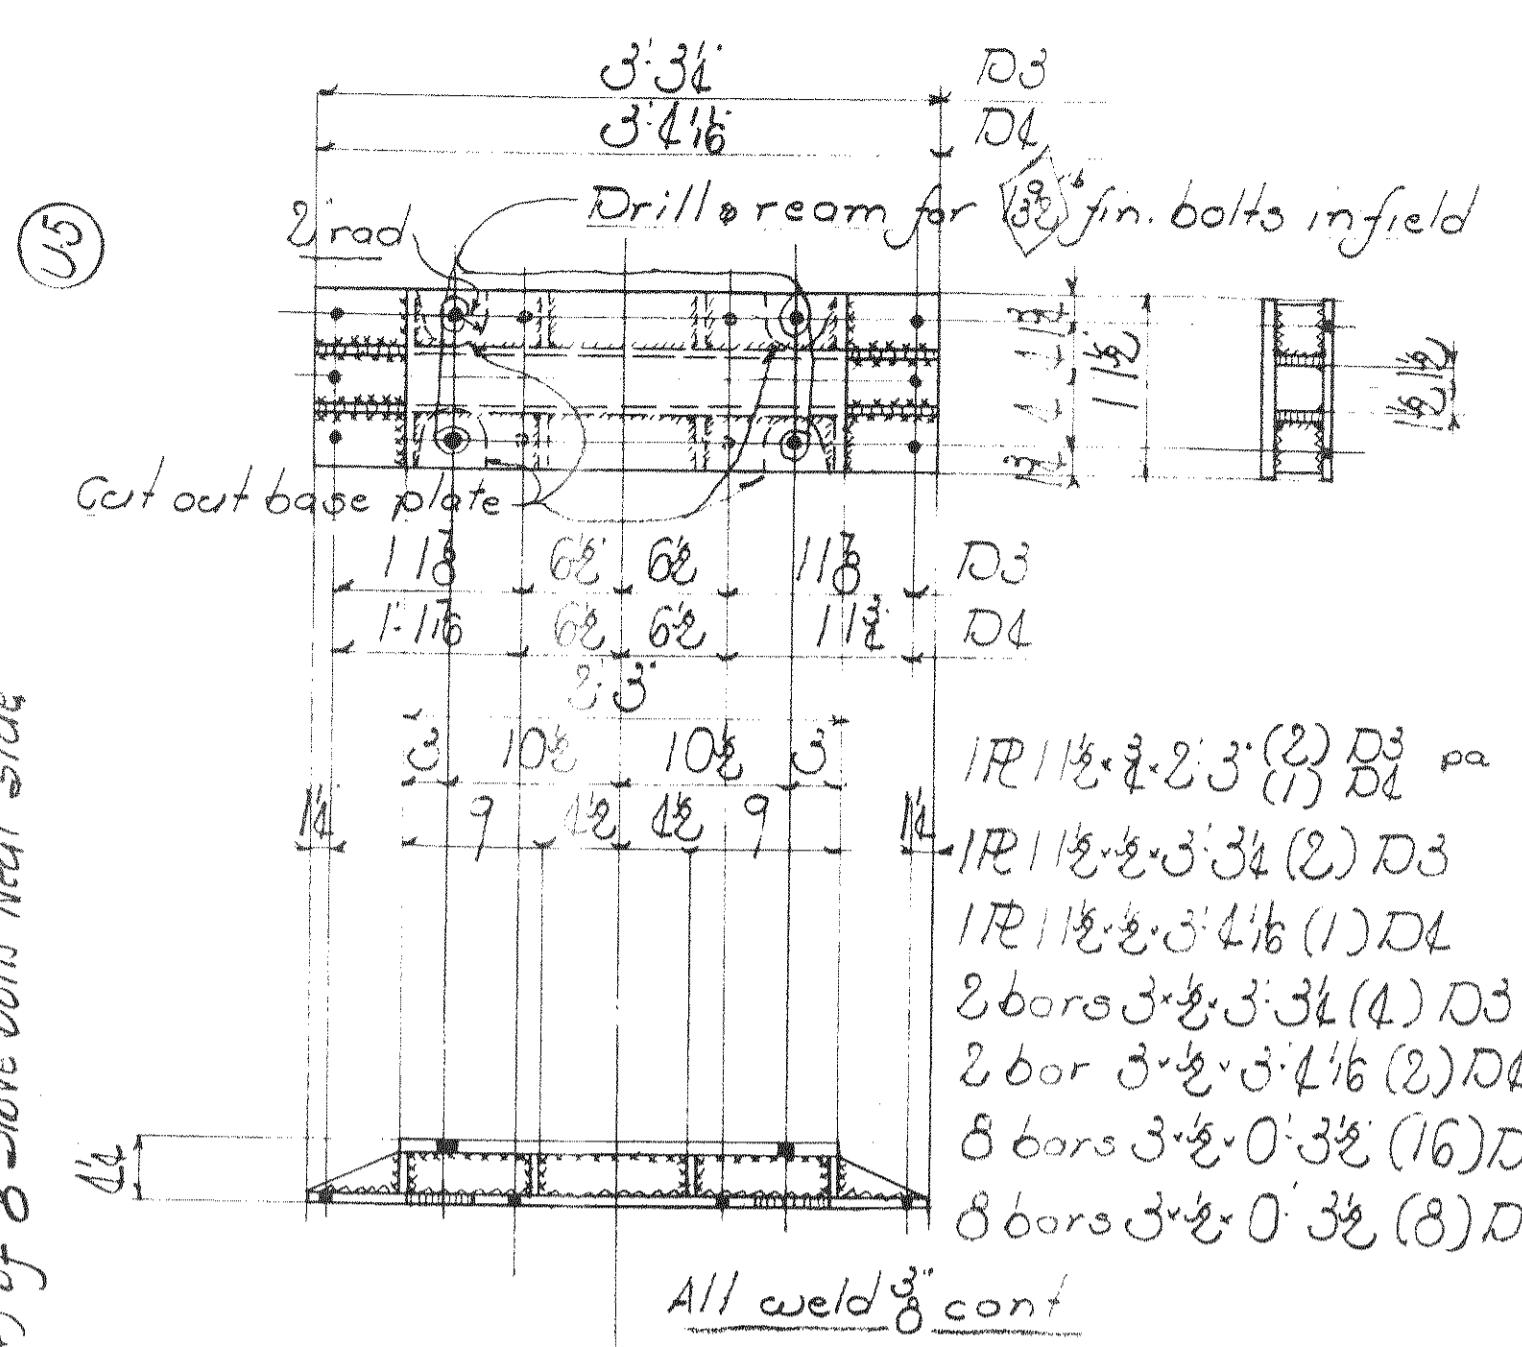 3'·3¼" D3
3'·4 1/16" D4
2" rad
Drill & ream for 1 9/32"ᵇ fin. bolts in field
U5
1¾
4
4
1¾
11½
1½
1½
Cut out base plate
11⅞ 6½ 6½ 11⅞ D3
1'·1 1/16 6½ 6½ 11¾ D4
2'·3"
3 10½ 10½ 3
1¼ 9 4½ 4½ 9 1¼
1 PL 11½ × ¾ × 2'·3" (2) D3 pa
(1) D4
1 PL 11½ × ½ × 3'·3¼ (2) D3
1 PL 11½ × ½ × 3'·4 1/16 (1) D4
2 bars 3 × ½ × 3'·3¼ (4) D3
2 bar 3 × ½ × 3'·4 1/16 (2) D4
8 bars 3 × ½ × 0'·3½ (16) D
8 bars 3 × ½ × 0'·3½ (8) D
4¼
All weld ⅜" cont
of 8
Near side